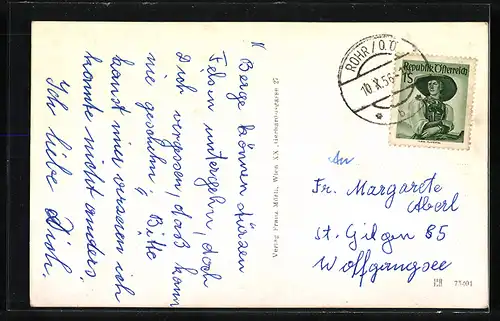 " Berge können
Felsen untergehn, doch
Dich vergessen, daß kann
nie geschehn! " Bitte
kanst mir verzeien ich
konnte nicht anders!
Ich liebe Dich.
Verlag Franz Mörtl, Wien XX,
ROHR / O.Ö.
10.X.56
b
Republik Österreich
1S
An
Fr. Margarete
Aberl
St. Gilgen 85
Wolffgangsee
73401